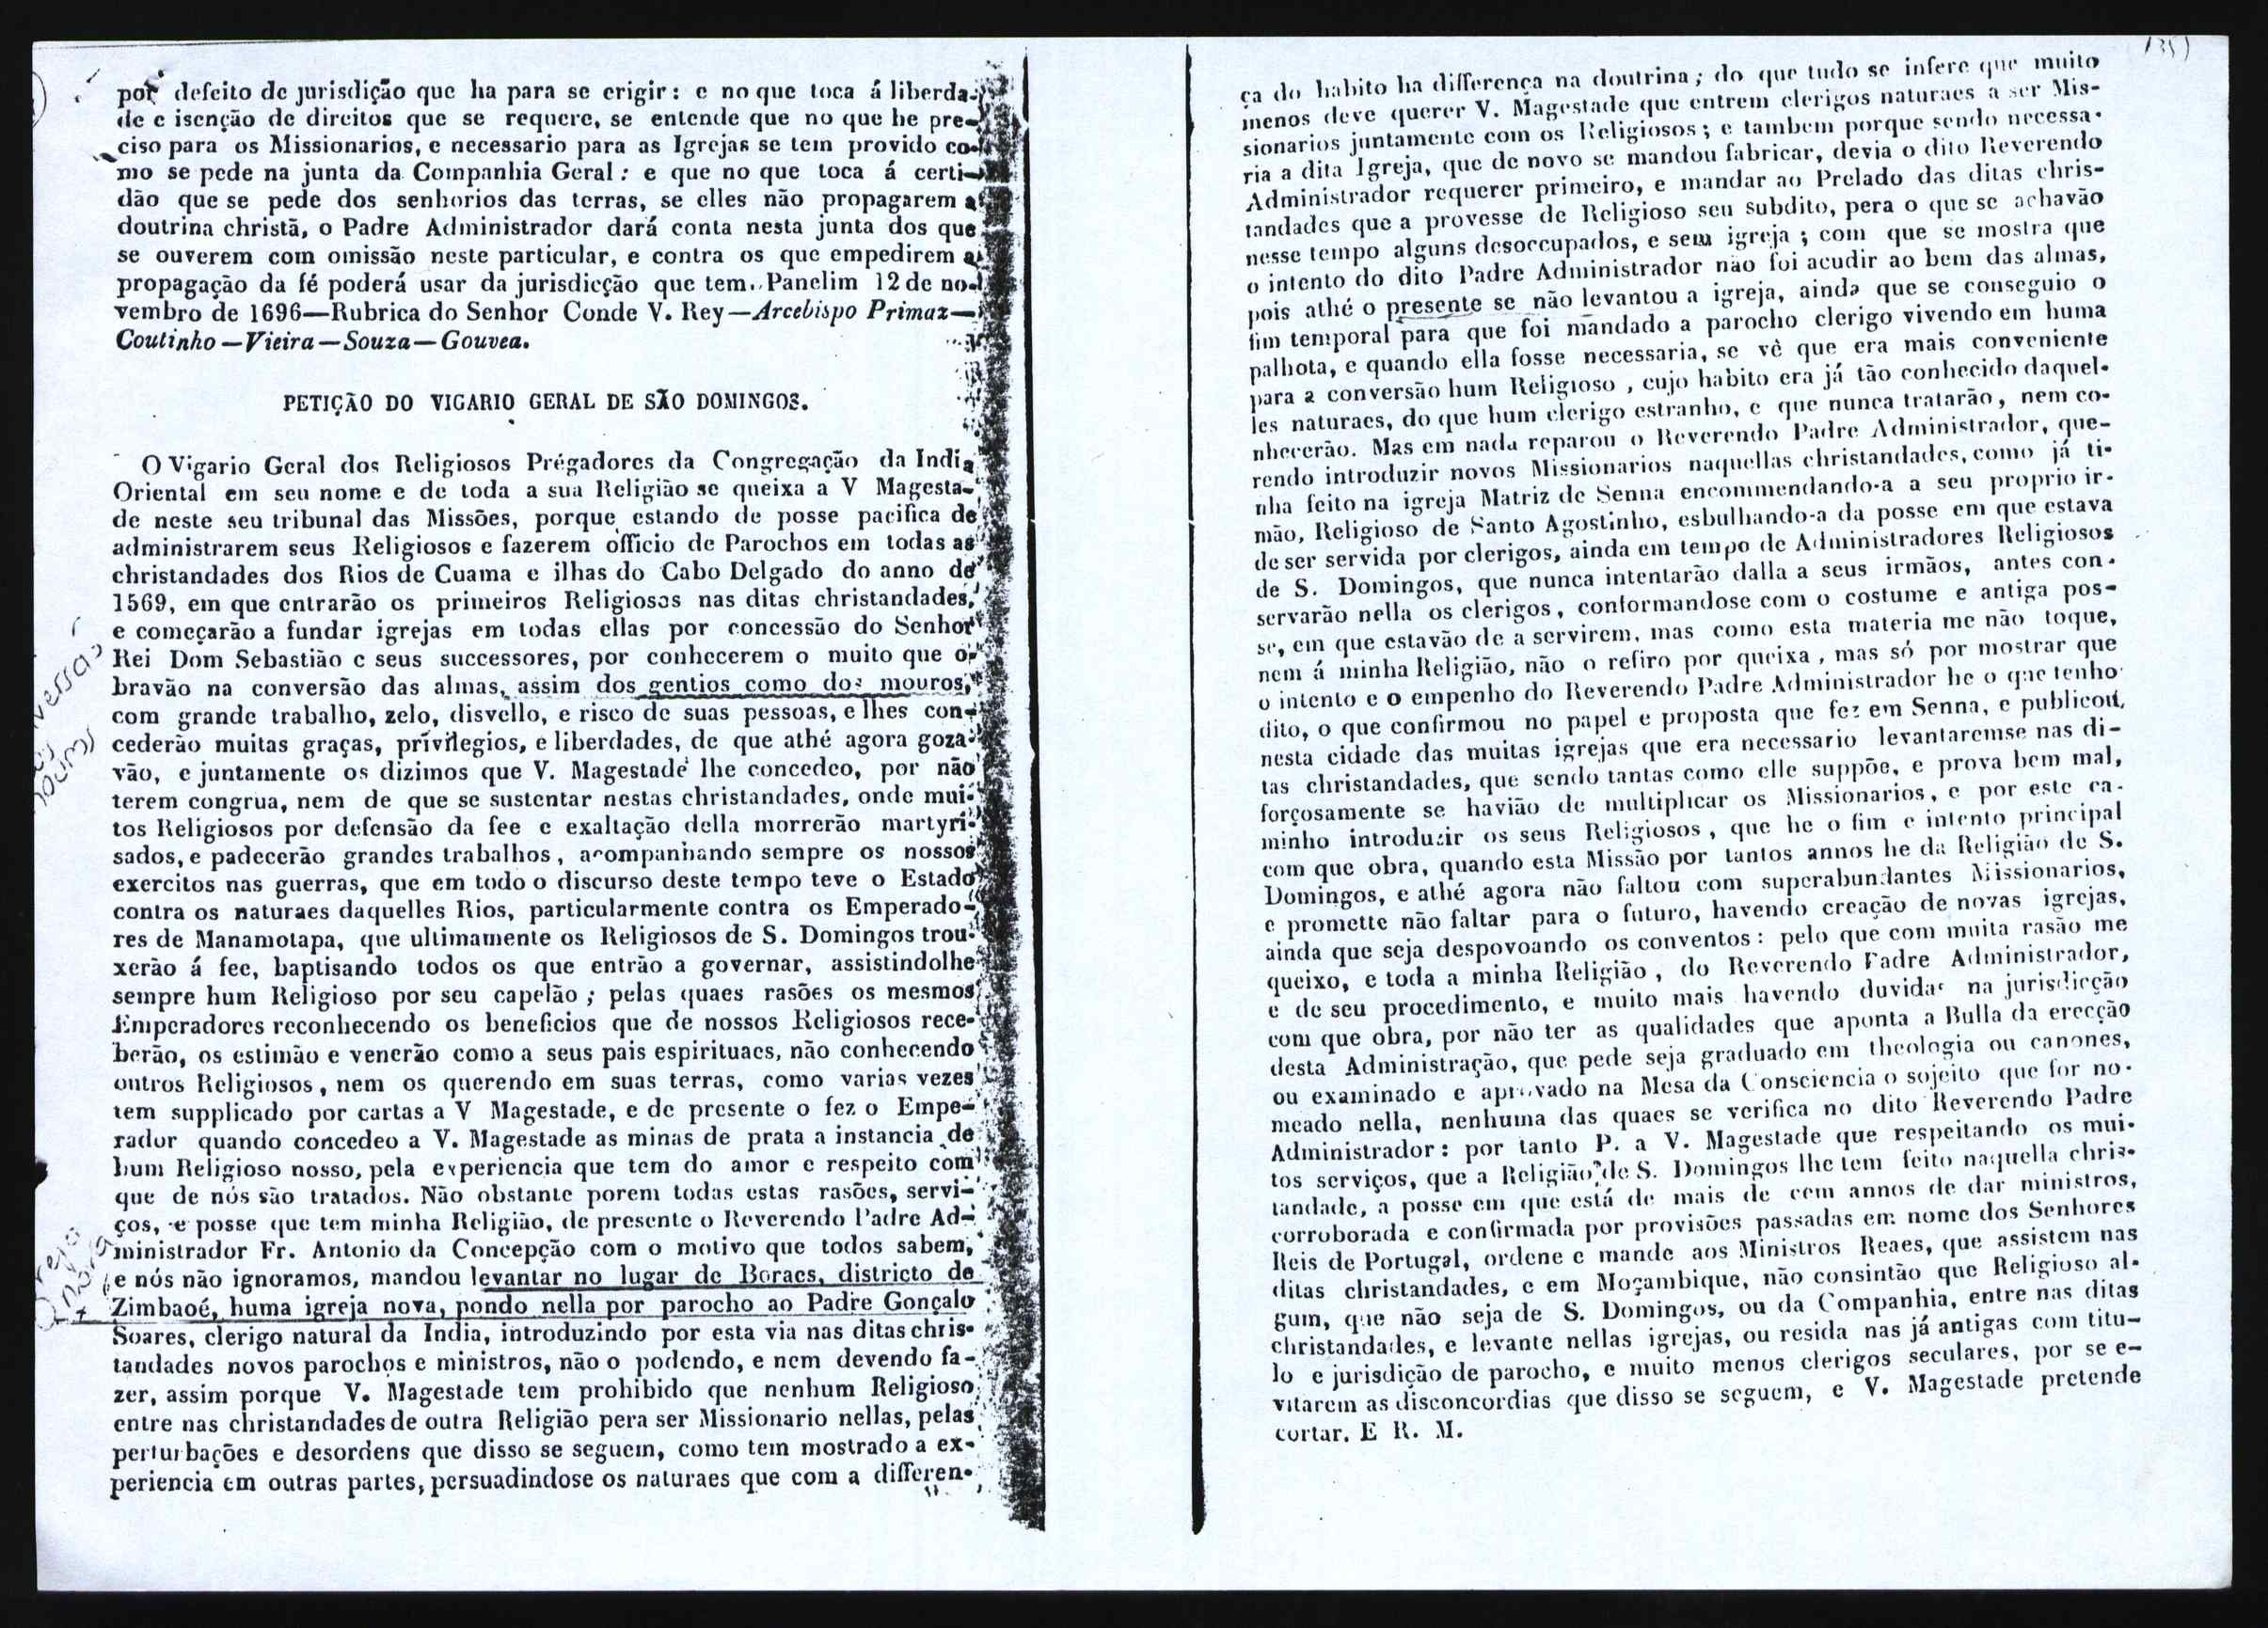 por defeito de jurisdição que ha para se erigir: e no que toca á liberda-
de e isenção de direitos que se requere, se entende que no que he pre-
ciso para os Missionarios, e necessario para as Igrejas se tem provido co-
mo se pede na junta da Companhia Geral: e que no que toca á certi-
dão que se pede dos senhorios das terras, se elles não propagarem a
doutrina christã, o Padre Administrador dará conta nesta junta dos que
se ouverem com omissão neste particular, e contra os que empedirem a
propagação da fé poderá usar da jurisdicção que tem. Panelim 12 de no-
vembro de 1696—Rubrica do Senhor Conde V. Rey—Arcebispo Primaz—
Coutinho—Vieira—Souza—Gouvea.
PETIÇÃO DO VIGARIO GERAL DE SÃO DOMINGOS.
O Vigario Geral dos Religiosos Prégadores da Congregação da India
Oriental em seu nome e de toda a sua Religião se queixa a V Magesta-
de neste seu tribunal das Missões, porque estando de posse pacifica de
administrarem seus Religiosos e fazerem officio de Parochos em todas as
christandades dos Rios de Cuama e ilhas do Cabo Delgado do anno de
1569, em que entrarão os primeiros Religiosos nas ditas christandades,
e começarão a fundar igrejas em todas ellas por concessão do Senhor
Rei Dom Sebastião e seus successores, por conhecerem o muito que o-
bravão na conversão das almas, assim dos gentios como dos mouros,
com grande trabalho, zelo, disvello, e risco de suas pessoas, e lhes con-
cederão muitas graças, privilegios, e liberdades, de que athé agora goza-
vão, e juntamente os dizimos que V. Magestade lhe concedeo, por não
terem congrua, nem de que se sustentar nestas christandades, onde mui-
tos Religiosos por defensão da fee e exaltação della morrerão martyri-
sados, e padecerão grandes trabalhos, acompanhando sempre os nossos
exercitos nas guerras, que em todo o discurso deste tempo teve o Estado
contra os naturaes daquelles Rios, particularmente contra os Emperado-
res de Manamotapa, que ultimamente os Religiosos de S. Domingos trou-
xerão á fee, baptisando todos os que entrão a governar, assistindolhe
sempre hum Religioso por seu capelão; pelas quaes rasões os mesmos
Emperadores reconhecendo os beneficios que de nossos Religiosos rece-
berão, os estimão e venerão como a seus pais espirituaes, não conhecendo
outros Religiosos, nem os querendo em suas terras, como varias vezes
tem supplicado por cartas a V Magestade, e de presente o fez o Empe-
rador quando concedeo a V. Magestade as minas de prata a instancia de
hum Religioso nosso, pela experiencia que tem do amor e respeito com
que de nós são tratados. Não obstante porem todas estas rasões, servi-
ços, e posse que tem minha Religião, de presente o Reverendo Padre Ad-
ministrador Fr. Antonio da Concepção com o motivo que todos sabem,
e nós não ignoramos, mandou levantar no lugar de Boraes, districto de
Zimbaoé, huma igreja nova, pondo nella por parocho ao Padre Gonçalo
Soares, clerigo natural da India, introduzindo por esta via nas ditas chris-
tandades novos parochos e ministros, não o podendo, e nem devendo fa-
zer, assim porque V. Magestade tem prohibido que nenhum Religioso
entre nas christandades de outra Religião pera ser Missionario nellas, pelas
perturbações e desordens que disso se seguem, como tem mostrado a ex-
periencia em outras partes, persuadindose os naturaes que com a differen-
ça do habito ha differença na doutrina; do que tudo se infere que muito
menos deve querer V. Magestade que entrem clerigos naturaes a ser Mis-
sionarios juntamente com os Religiosos; e tambem porque sendo necessa-
ria a dita Igreja, que de novo se mandou fabricar, devia o dito Reverendo
Administrador requerer primeiro, e mandar ao Prelado das ditas chris-
tandades que a provesse de Religioso seu subdito, pera o que se achavão
nesse tempo alguns desoccupados, e sem igreja; com que se mostra que
o intento do dito Padre Administrador não foi acudir ao bem das almas,
pois athé o presente se não levantou a igreja, ainda que se conseguio o
fim temporal para que foi mandado a parocho clerigo vivendo em huma
palhota, e quando ella fosse necessaria, se vê que era mais conveniente
para a conversão hum Religioso, cujo habito era já tão conhecido daquel-
les naturaes, do que hum clerigo estranho, e que nunca tratarão, nem co-
nhecerão. Mas em nada reparou o Reverendo Padre Administrador, que-
rendo introduzir novos Missionarios naquellas christandades, como já ti-
nha feito na igreja Matriz de Senna encommendando-a a seu proprio ir-
mão, Religioso de Santo Agostinho, esbulhando-a da posse em que estava
de ser servida por clerigos, ainda em tempo de Administradores Religiosos
de S. Domingos, que nunca intentarão dalla a seus irmãos, antes con-
servarão nella os clerigos, conformandose com o costume e antiga pos-
se, em que estavão de a servirem, mas como esta materia me não toque,
nem á minha Religião, não o refiro por queixa, mas só por mostrar que
o intento e o empenho do Reverendo Padre Administrador he o que tenho
dito, o que confirmou no papel e proposta que fez em Senna, e publicou
nesta cidade das muitas igrejas que era necessario levantaremse nas di-
tas christandades, que sendo tantas como elle suppõe, e prova bem mal,
forçosamente se havião de multiplicar os Missionarios, e por este ca-
minho introduzir os seus Religiosos, que he o fim e intento principal
com que obra, quando esta Missão por tantos annos he da Religião de S.
Domingos, e athé agora não faltou com superabundantes Missionarios,
e promette não faltar para o futuro, havendo creação de novas igrejas,
ainda que seja despovoando os conventos: pelo que com muita rasão me
queixo, e toda a minha Religião, do Reverendo Padre Administrador,
e de seu procedimento, e muito mais havendo duvidas na jurisdicção
com que obra, por não ter as qualidades que aponta a Bulla da erecção
desta Administração, que pede seja graduado em theologia ou canones,
ou examinado e aprovado na Mesa da Consciencia o sojeito que for no-
meado nella, nenhuma das quaes se verifica no dito Reverendo Padre
Administrador: por tanto P. a V. Magestade que respeitando os mui-
tos serviços, que a Religião de S. Domingos lhe tem feito naquella chris-
tandade, a posse em que está de mais de cem annos de dar ministros,
corroborada e confirmada por provisões passadas em nome dos Senhores
Reis de Portugal, ordene e mande aos Ministros Reaes, que assistem nas
ditas christandades, e em Moçambique, não consintão que Religioso al-
gum, que não seja de S. Domingos, ou da Companhia, entre nas ditas
christandades, e levante nellas igrejas, ou resida nas já antigas com titu-
lo e jurisdição de parocho, e muito menos clerigos seculares, por se e-
vitarem as disconcordias que disso se seguem, e V. Magestade pretende
cortar. E R. M.